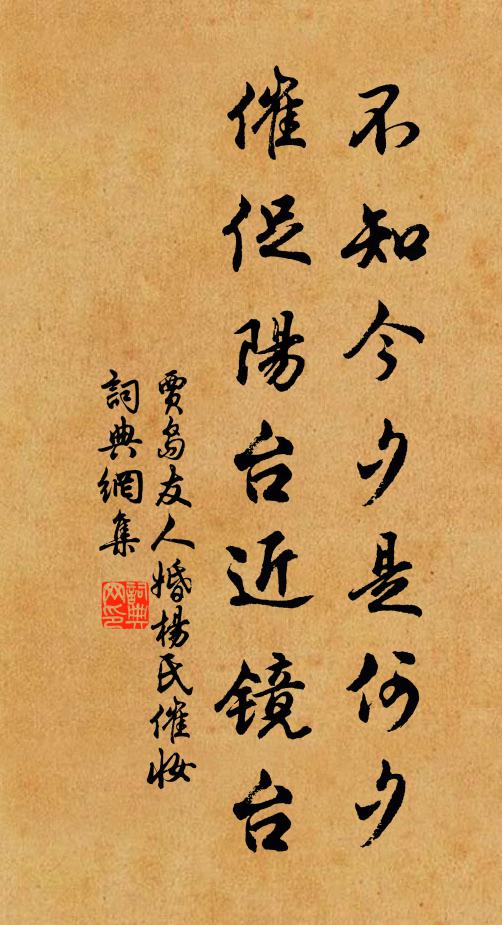 不知今夕是何夕
催促陽台近镜台
賈島友人婚楊氏催妝
詞典網集
詞典网印